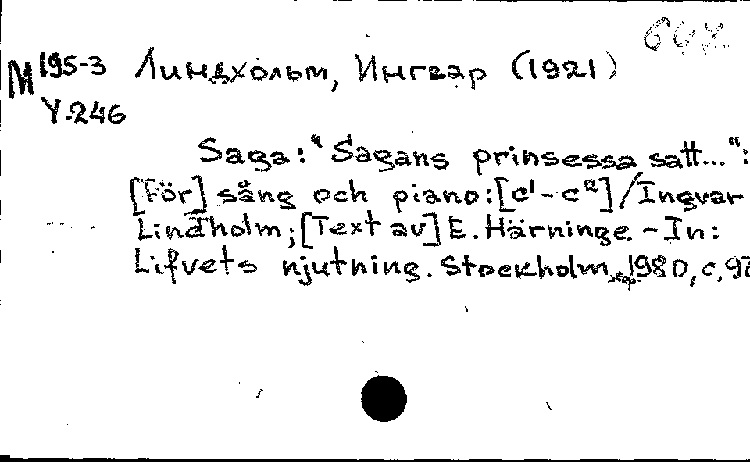 М 195-3 Линдхольм, Ингвар (1921)
Y-246
Saga: "Sagans prinsessa satt...":
[För] sång och piano: [c¹-c²] / Ingvar
Lindholm; [Text av] E. Härninge. - In:
Lifvets njutning. Stockholm, 1980, c. 97